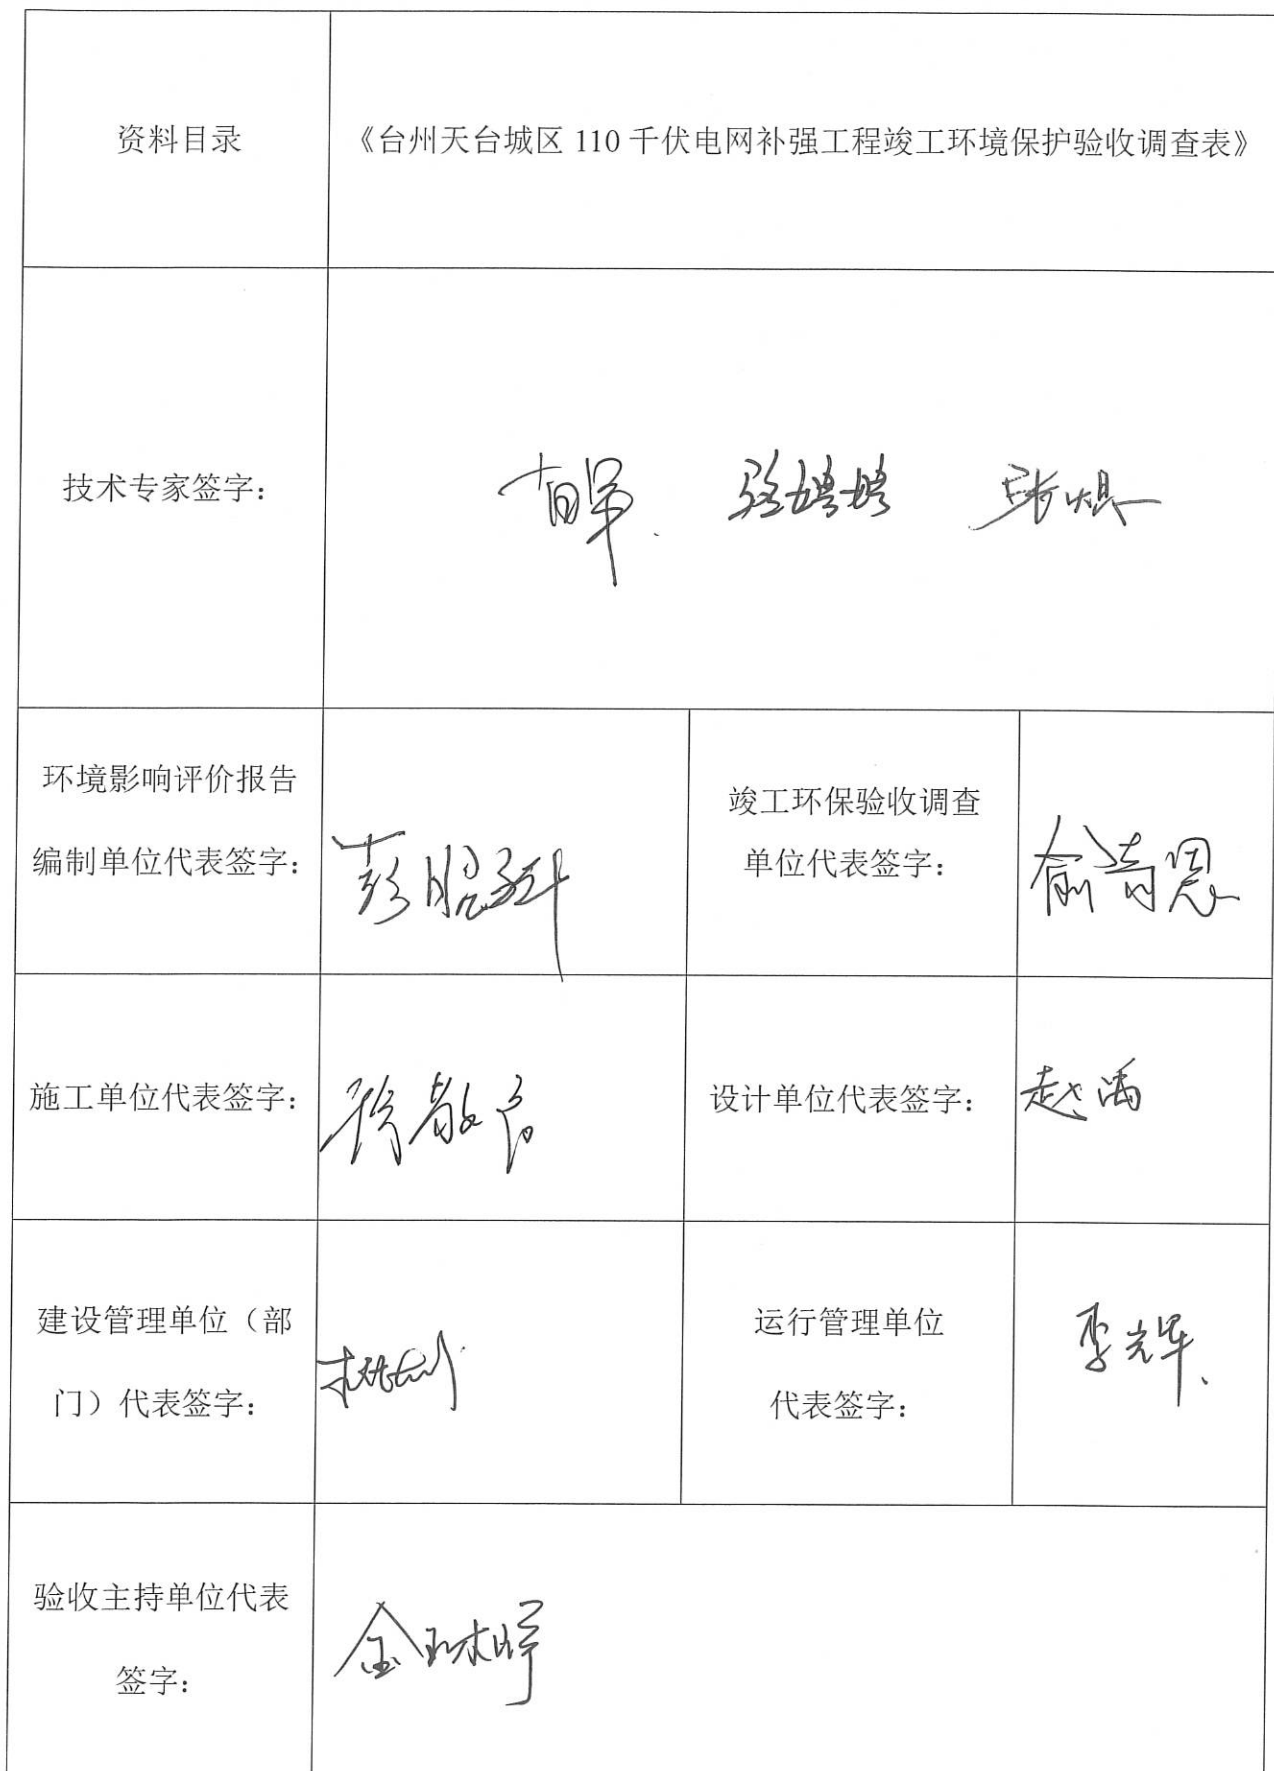 资料目录
《台州天台城区 110 千伏电网补强工程竣工环境保护验收调查表》
技术专家签字：
骆娉娉
环境影响评价报告
编制单位代表签字：
竣工环保验收调查
单位代表签字：
施工单位代表签字：
设计单位代表签字：
赵满
建设管理单位（部
门）代表签字：
运行管理单位
代表签字：
李光辉
验收主持单位代表
签字：